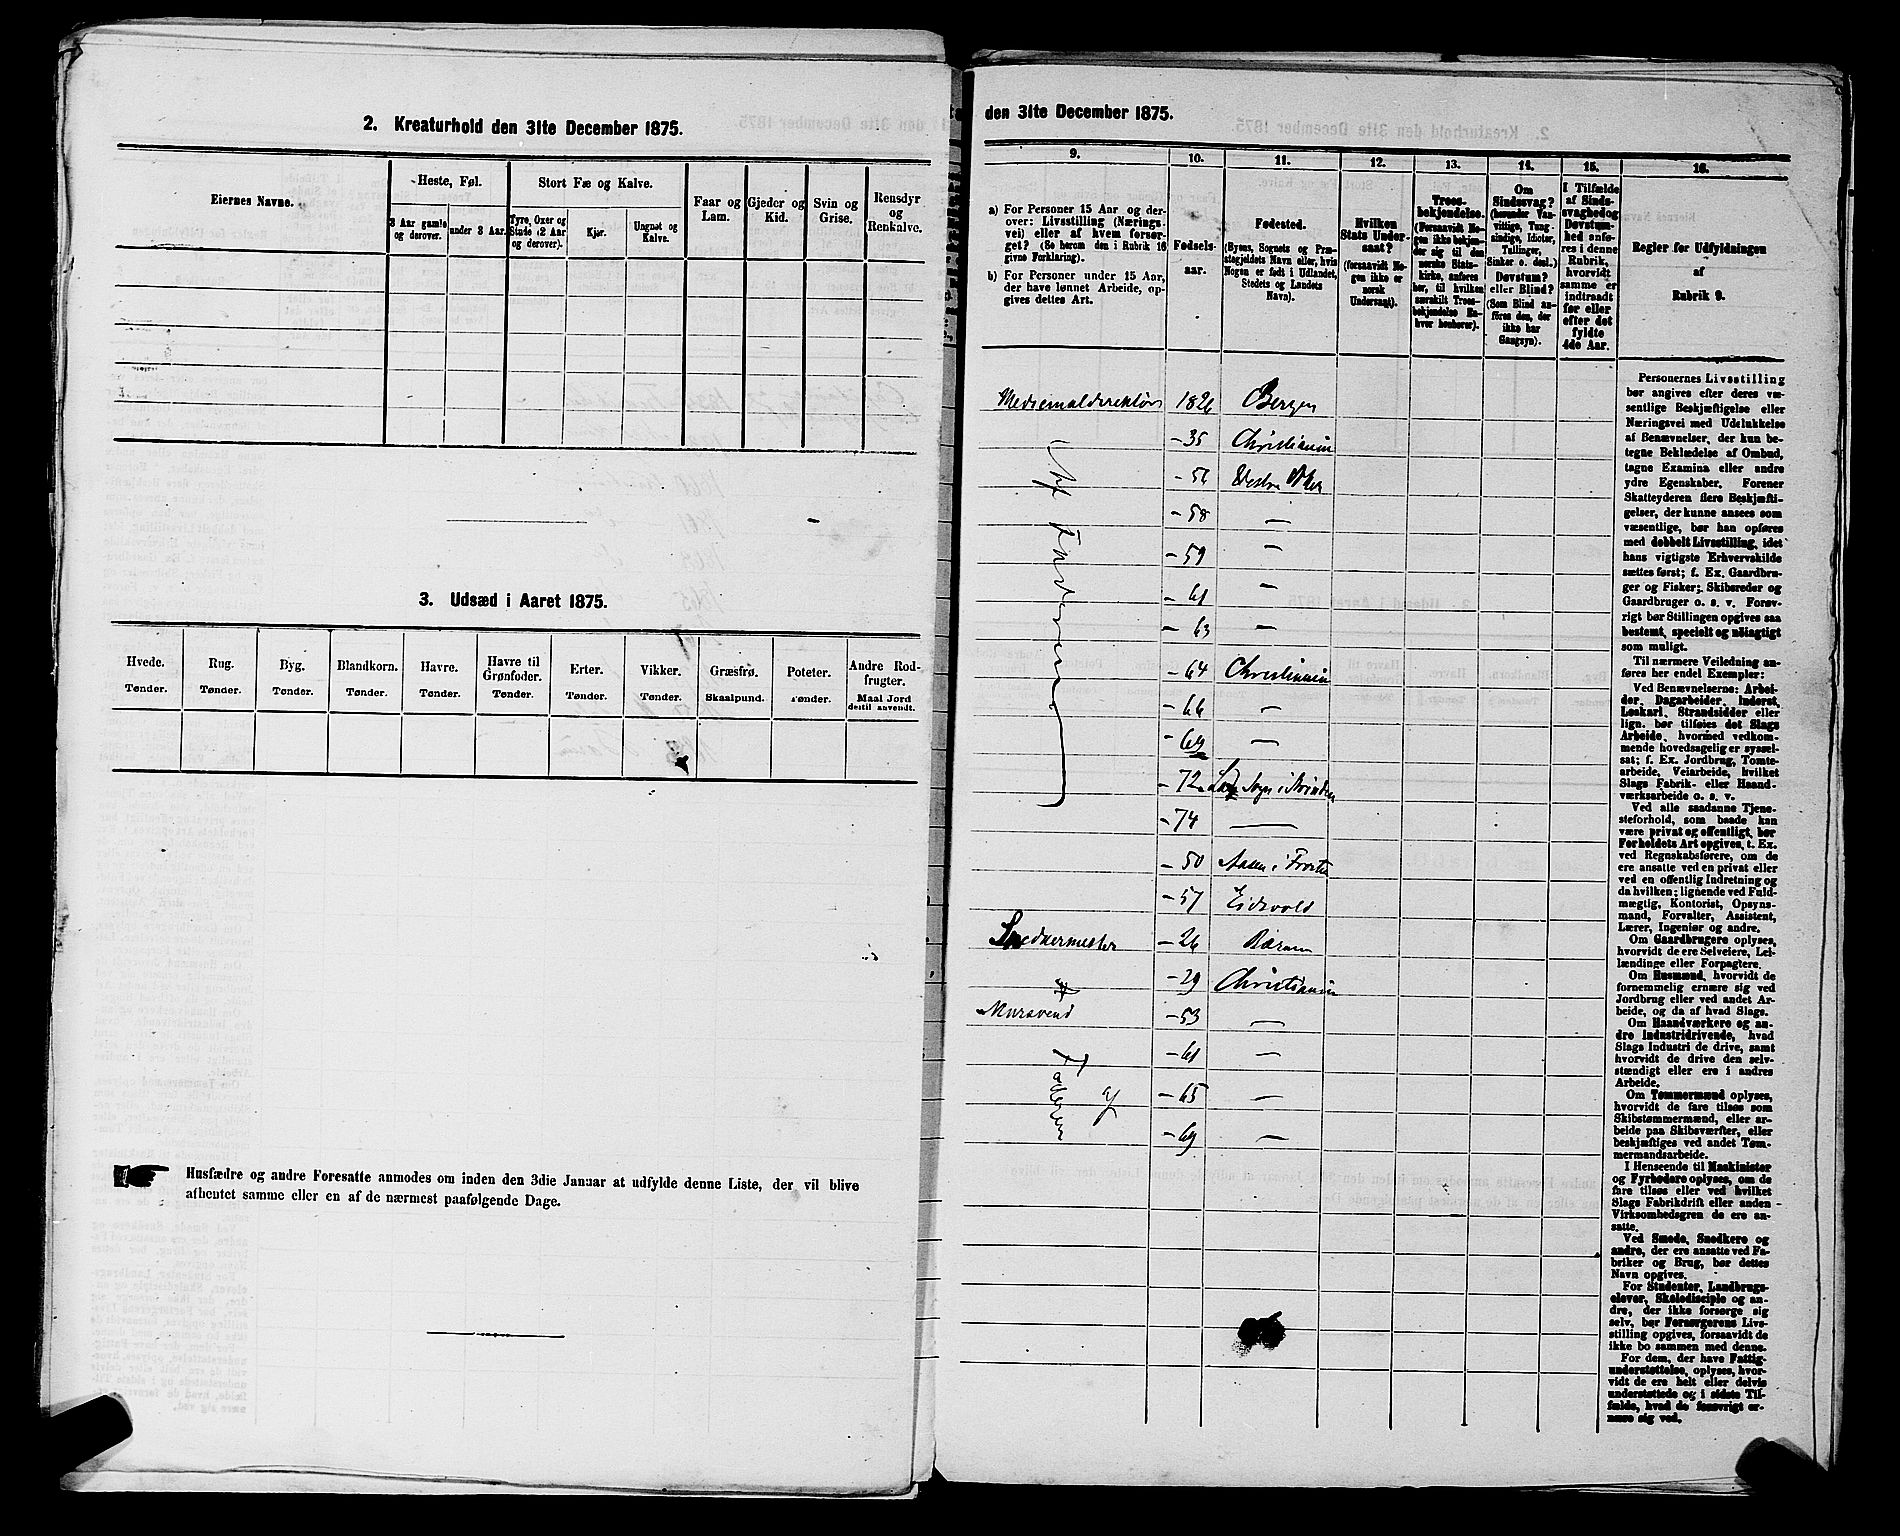 2. Kreaturhold den 31te December 1875.
Eiernes Navne.
Heste, Føl.
3 Aar gamle og derover.
under 3 Aar.
Stort Fæ og Kalve.
Tyre, Oxer og Stude (2 Aar og derover).
Kjør.
Ungnøt og Kalve.
Faar og Lam.
Gjeder og Kid.
Svin og Grise.
Rensdyr og Renkalve.
3. Udsæd i Aaret 1875.
Hvede. Tønder.
Rug. Tønder.
Byg. Tønder.
Blandkorn. Tønder.
Havre. Tønder.
Havre til Grønfoder. Tønder.
Erter. Tønder.
Vikker. Tønder.
Græsfrø. Skaalpund.
Poteter. Tønder.
Andre Rodfrugter. Maal Jord dertil anvendt.
Husfædre og andre Foresatte anmodes om inden den 3die Januar at udfylde denne Liste, der vil blive
afhentet samme eller en af de nærmest paafølgende Dage.
den 31te December 1875.
9.
a) For Personer 15 Aar og derover: Livsstilling (Næringsvei) eller af hvem forsørget? (Se herom den i Rubrik 16 givne Forklaring).
b) For Personer under 15 Aar, der have lønnet Arbeide, opgives dettes Art.
10.
Fødselsaar.
11.
Fødested.
(Byens, Sognets og Præstegjeldets Navn eller, hvis Nogen er født i Udlandet, Stedets og Landets Navn).
12.
Hvilken Stats Undersaat?
(forsaavidt Nogen ikke er norsk Undersaat).
13.
Troesbekjendelse.
(Forsaavidt Nogen ikke bekjender sig til den norske Statskirke, anføres her, til hvilken særskilt Troesbekjendelse Enhver henhører).
14.
Om Sindssvag? (herunder Vanvittige, Tungsindige, Idioter, Tullinger, Sinker o. desl.) Døvstum? eller Blind?
(Som Blind anføres den, der ikke har Gangsyn).
15.
I Tilfælde af Sindssvaghed og Døvstumhed anføres i denne Rubrik, hvorvidt samme er indtraadt før eller efter det fyldte 4de Aar.
16.
Regler for Udfyldningen af Rubrik 9.
1826 Bergen
Af Faderen
-35 Christiania
-56 Vestre Aker
-58 —
-59 —
-61 —
-63 —
-64 Christiania
-66 —
-69 —
-72
-74 —
-50 Aasen i Frosten
-57 Eidsvold
Snedkermester -26 Bærum
-29 Christiania
Mursvend -53 —
-61 —
af Faderen -65 —
-69 —
Personernes Livsstilling
bør angives efter deres væsentlige
Beskjæftigelse eller
Næringsvei med Udelukkelse
af Benævnelser, der kun betegne
Beklædelse af Ombud,
tagne Examina eller andre
ydre Egenskaber. Forener
Skatteyderen flere Beskjæftigelser,
der kunne ansees som
væsentlige, bør han opføres
med dobbelt Livsstilling, idet
hans vigtigste Erhvervskilde
sættes først; f. Ex. Gaardbruger
og Fisker; Skibsreder og
Gaardbruger o. s. v. Forøvrigt
bør Stillingen opgives saa
bestemt, specielt og nøiagtigt
som muligt.
Til nærmere Veiledning anføres
her endel Exempler:
Ved Benævnelserne: Arbeider,
Dagarbeider, Inderst,
Løskarl, Strandsidder eller
lign. bør tilføies det Slags
Arbeide, hvormed vedkommende
hovedsagelig er sysselsat;
f. Ex. Jordbrug, Tomtearbeide,
Veiarbeide, hvilket
Slags Fabrik- eller Haandværksarbeide
o. s. v.
Ved alle saadanne Tjenesteforhold,
som baade kan
være privat og offentligt, bør
Forholdets Art opgives, t. Ex.
ved Regnskabsførere, om de
ere ansatte ved en privat eller
ved en offentlig Indretning og
da hvilken; lignende ved Fuldmægtig,
Kontorist, Opsynsmand,
Forvalter, Assistent,
Lærer, Ingeniør og andre.
Om Gaardbrugere oplyses,
hvorvidt de ere Selveiere, Leilændinge
eller Forpagtere.
Om Husmænd, hvorvidt de
fornemmelig ernære sig ved
Jordbrug eller ved andet Arbeide,
og da af hvad Slags.
Om Haandværkere og andre
Industridrivende, hvad
Slags Industri de drive, samt
hvorvidt de drive den selvstændigt
eller ere i andres
Arbeide.
Om Tømmermænd oplyses,
hvorvidt de fare tilsøs som
Skibstømmermænd, eller arbeide
paa Skibsværfter, eller
beskjæftiges ved andet Tømmermandsarbeide.
I Henseende til Maskinister
og Fyrbødere oplyses, om de
fare tilsøs eller ved hvilket
Slags Fabrikdrift eller anden
Virksomhedsgren de ere ansatte.
Ved Smede, Snedkere og
andre, der ere ansatte ved Fabriker
og Brug, bør dettes
Navn opgives.
For Studenter, Landbrugselever,
Skoledisciple og andre,
der ikke forsørge sig
selv, bør Forsørgerens Livsstilling
opgives, forsaavidt de
ikke bo sammen med denne.
For dem, der have Fattigunderstøttelse,
oplyses, hvorvidt
de ere helt eller delvis
understøttede og i sidste Tilfælde,
hvad de forøvrigt ernære
sig ved.